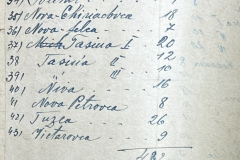 35) Nova-Chisiacovca 18
36) Nova felea 7
37) Tasina I 20
38 Tasina II 12
39) III 10
40 Niva 16
41 Nova Petrovca 8
42) Tuzla 26
43) Victorovca 9
482